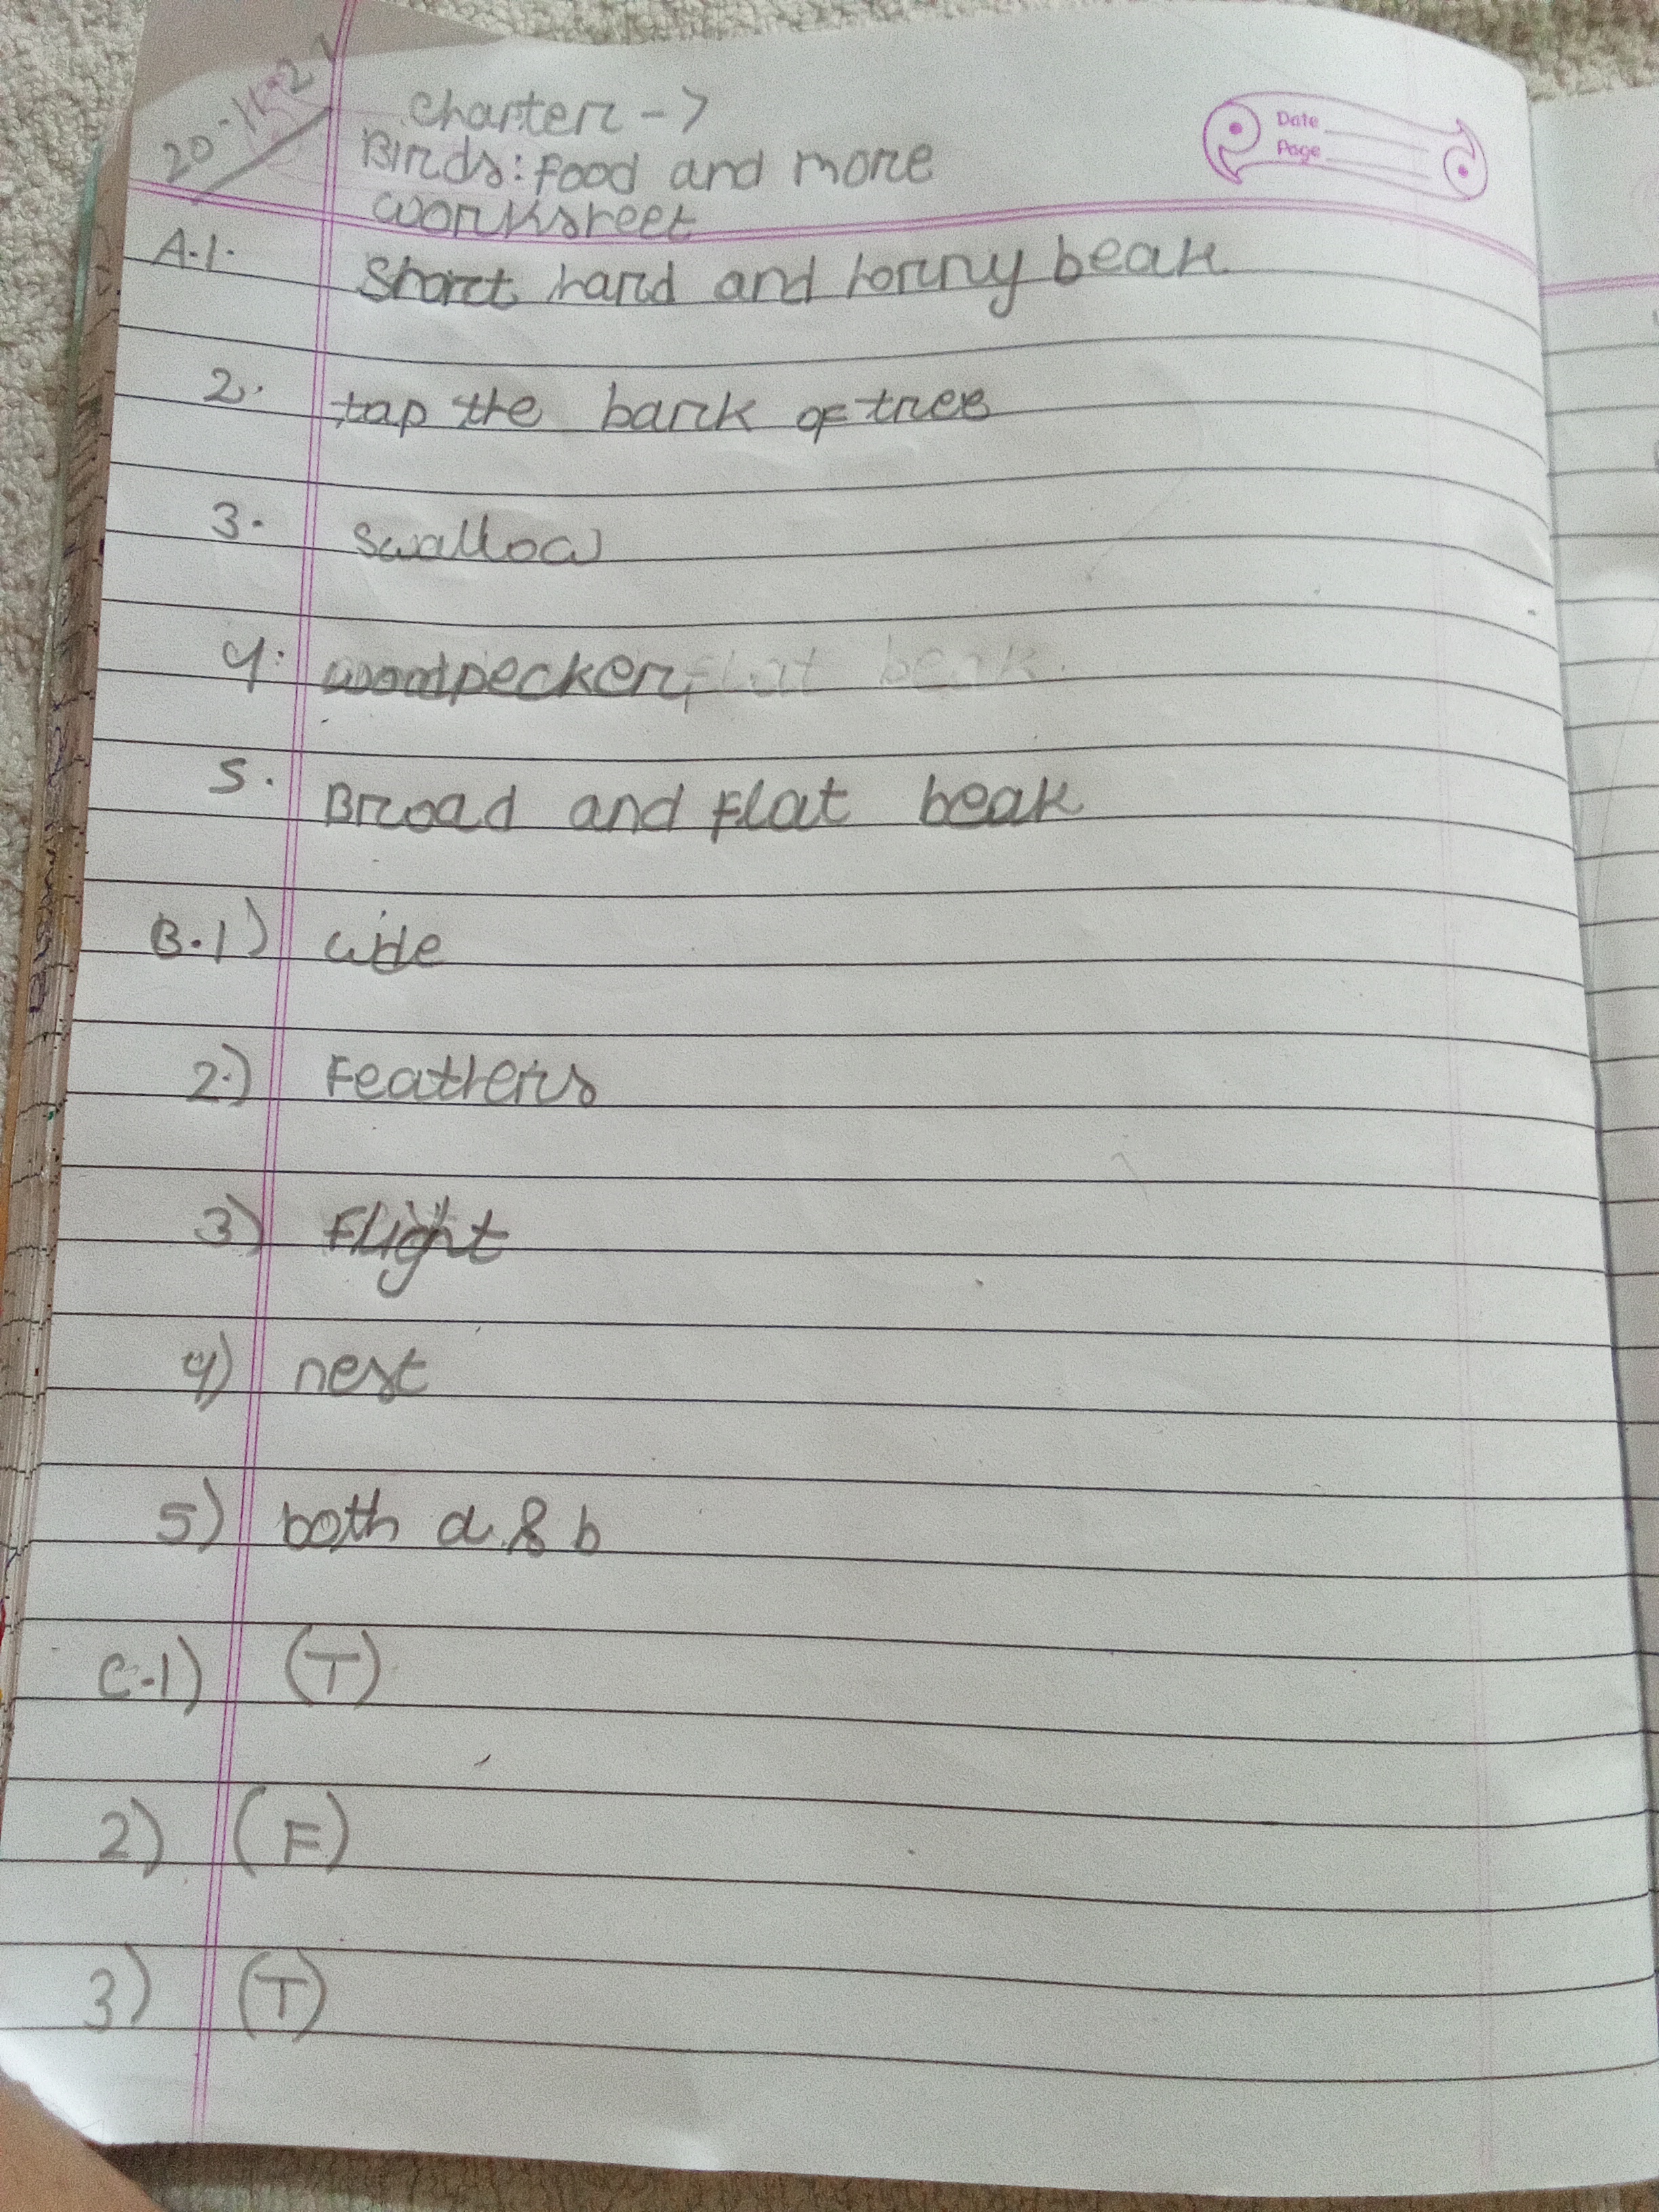 20-11-21
Chapter - 7
Birds: Food and more
worksheet
Date
Page
A.1. Short hard and horny beak
2. tap the bark of tree
3. swallow
4. woodpecker, flat beak
5. Broad and flat beak
B.1) wide
2.) Feathers
3) Flight
4) nest
5) both a & b
C.1) (T)
2) (F)
3) (T)